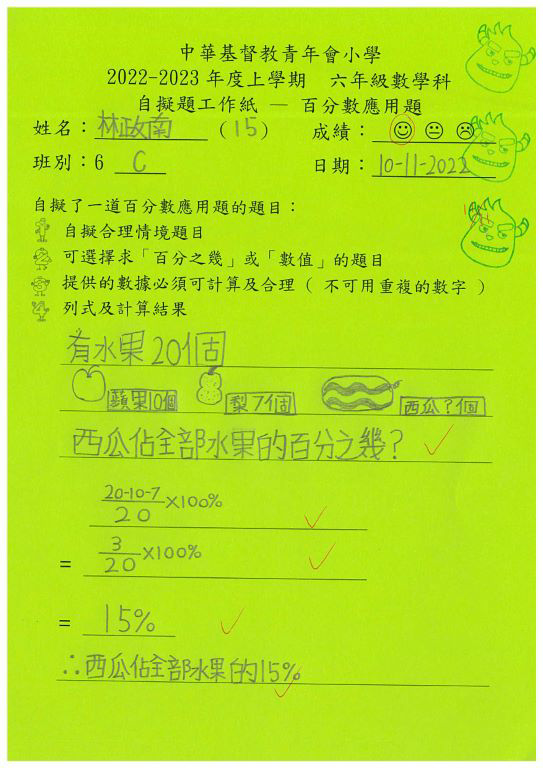 中華基督教青年會小學
2022-2023 年度上學期 六年級數學科
自擬題工作紙 — 百分數應用題
姓名：林政南 (15) 成績：
班別：6 C 日期：10-11-2022
自擬了一道百分數應用題的題目：
自擬合理情境題目
可選擇求「百分之幾」或「數值」的題目
提供的數據必須可計算及合理 ( 不可用重複的數字 )
列式及計算結果
有水果20個
蘋果10個 梨7個 西瓜?個
西瓜佔全部水果的百分之幾?
20-10-7
20
×100%
= 3
20
×100%
= 15%
∴西瓜佔全部水果的15%